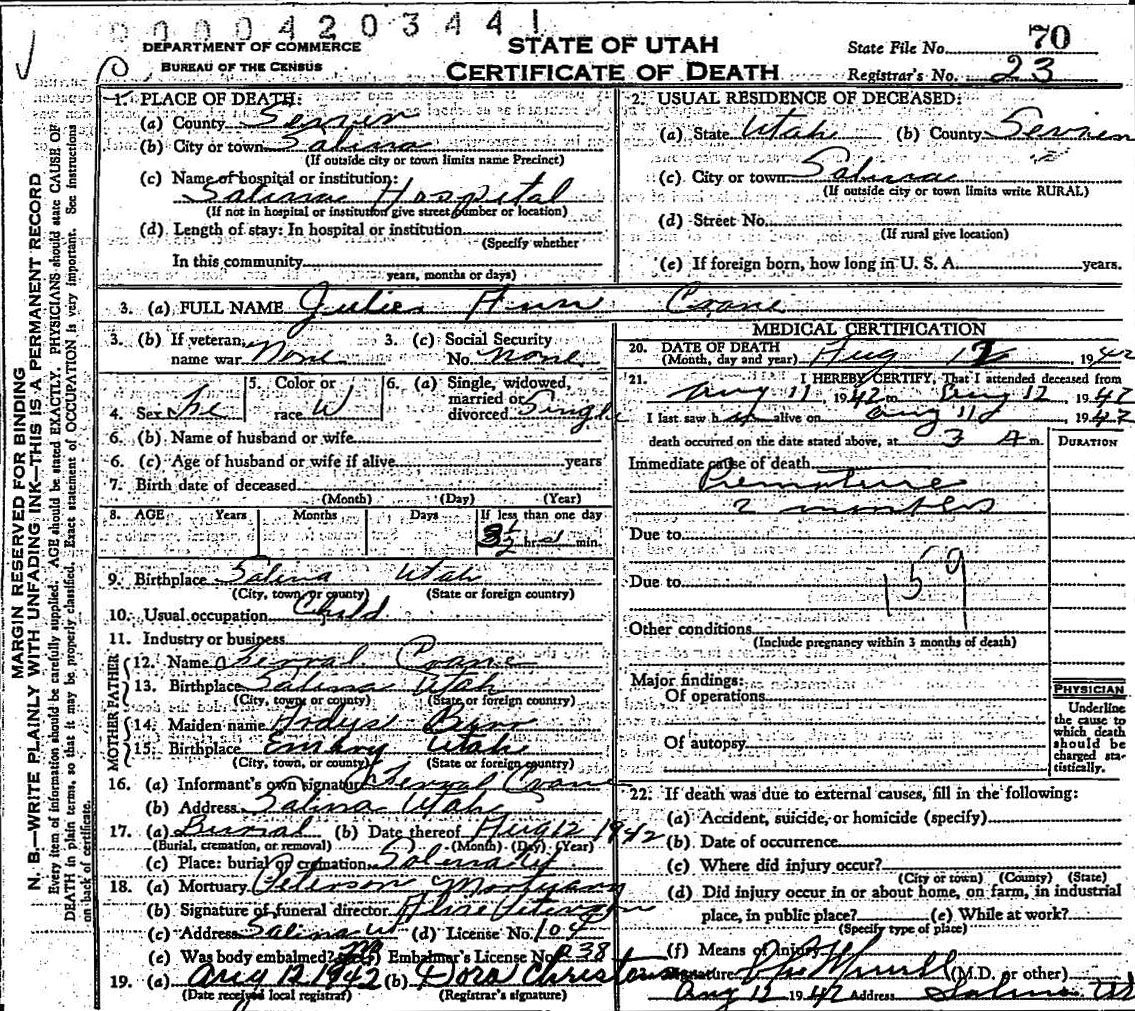 0000420344 1
DEPARTMENT OF COMMERCE
BUREAU OF THE CENSUS
STATE OF UTAH
CERTIFICATE OF DEATH
State File No. 70
Registrar's No. 23
MARGIN RESERVED FOR BINDING
N. B.—WRITE PLAINLY WITH UNFADING INK—THIS IS A PERMANENT RECORD
Every item of information should be carefully supplied. AGE should be stated EXACTLY. PHYSICIANS should state CAUSE OF
DEATH in plain terms, so that it may be properly classified. Exact statement of OCCUPATION is very important. See instructions
on back of certificate.
1. PLACE OF DEATH:
(a) County Sevier
(b) City or town Salina
(If outside city or town limits name Precinct)
(c) Name of hospital or institution:
Salina Hospital
(If not in hospital or institution give street number or location)
(d) Length of stay: In hospital or institution
(Specify whether
In this community
years, months or days)
2. USUAL RESIDENCE OF DECEASED:
(a) State Utah (b) County Sevier
(c) City or town Salina
(If outside city or town limits write RURAL)
(d) Street No.
(If rural give location)
(e) If foreign born, how long in U. S. A. years.
3. (a) FULL NAME Julie Ann Crane
3. (b) If veteran, name war None
3. (c) Social Security No. none
4. Sex Fe
5. Color or race W
6. (a) Single, widowed, married or divorced Single
6. (b) Name of husband or wife
6. (c) Age of husband or wife if alive years
7. Birth date of deceased
(Month) (Day) (Year)
8. AGE Years Months Days If less than one day
3 1/2 hrs. min.
9. Birthplace Salina Utah
(City, town, or county) (State or foreign country)
10. Usual occupation Child
11. Industry or business
FATHER
12. Name Ferral Crane
13. Birthplace Salina Utah
(City, town or county) (State or foreign country)
MOTHER
14. Maiden name
15. Birthplace Emery Utah
(City, town, or county) (State or foreign country)
16. (a) Informant's own signature Ferral Crane
(b) Address Salina Utah
17. (a) Burial (b) Date thereof Aug 12 1942
(Burial, cremation, or removal) (Month) (Day) (Year)
(c) Place: burial or cremation Salina Ut
18. (a) Mortuary Peterson Mortuary
(b) Signature of funeral director Peterson
(c) Address Salina Ut (d) License No. 104
(e) Was body embalmed? no Embalmer's License No. 238
19. (a) Aug 12 1942 (b) Dora Christensen
(Date received local registrar) (Registrar's signature)
MEDICAL CERTIFICATION
20. DATE OF DEATH
(Month, day and year) Aug 12 1942
21. I HEREBY CERTIFY, That I attended deceased from
Aug 11 1942 to Aug 12 1942
I last saw h er alive on Aug 11 1942
death occurred on the date stated above, at 3 A m.
DURATION
Immediate cause of death
Premature
2 months
Due to
Due to
159
Other conditions
(Include pregnancy within 3 months of death)
Major findings:
Of operations
Of autopsy
PHYSICIAN
Underline
the cause to
which death
should be
charged sta-
tistically.
22. If death was due to external causes, fill in the following:
(a) Accident, suicide, or homicide (specify)
(b) Date of occurrence
(c) Where did injury occur?
(City or town) (County) (State)
(d) Did injury occur in or about home, on farm, in industrial
place, in public place? (e) While at work?
(Specify type of place)
(f) Means of injury
Signature (M.D. or other)
Aug 12 1942 Address Salina Ut